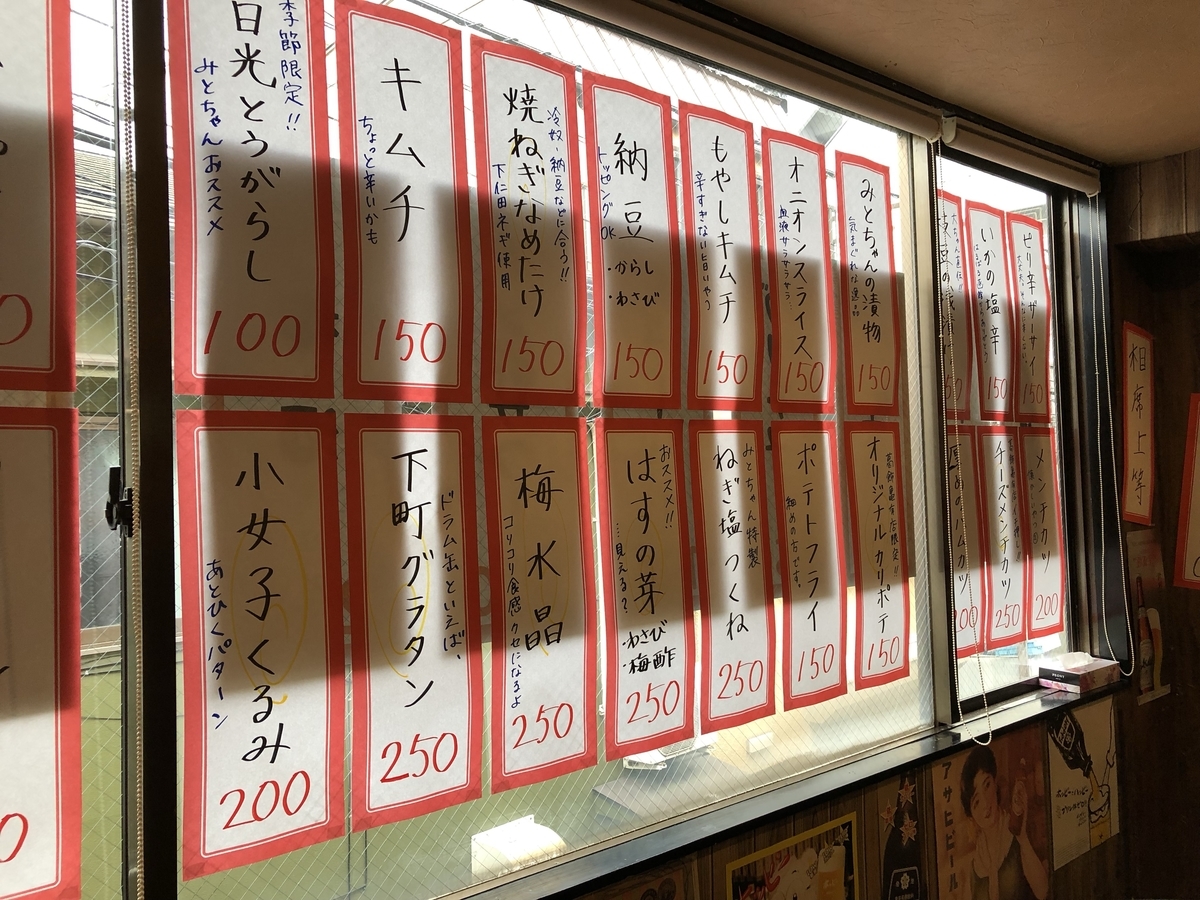 季節限定!!
日光とうがらし
みとちゃんおススメ
100
キムチ
ちょっと辛いかも
150
冷奴・納豆などに合う!!
焼ねぎなめたけ
下仁田ネギ使用
150
納豆
トッピングOK
・からし
・わさび
150
もやしキムチ
150
オニオンスライス
血液サラサラサラ…
150
みとちゃんの漬物
気まぐれな逸品
150
いかの塩辛
150
ピリ辛ザーサイ
150
小女子くるみ
あとひくパターン
200
ドラム缶といえば、
下町グラタン
250
梅水晶
コリコリ食感クセになるよ
250
おススメ!!
はすの芽
…見える?
・わさび
・梅酢
250
みとちゃん特製
ねぎ塩つくね
250
ポテトフライ
細めの方です。
150
葛飾亀有店限定!!
オリジナルカリポテ
150
チーズメンチカツ
250
メンチカツ
200
相席上等
アサヒビール